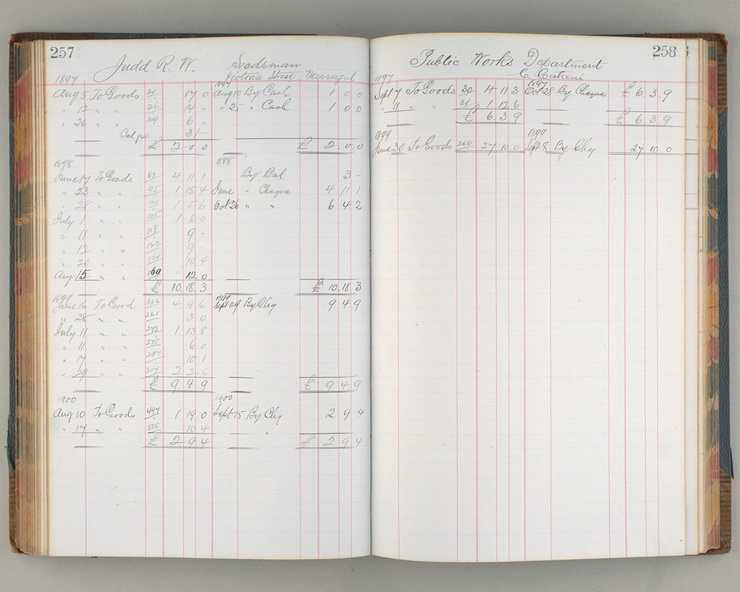 257
Judd R. W. Seedsman
Victoria Street Warragul
1897 1897
Aug 5 To Goods 21 17 0 Aug 10 By Cash 1 0 0
" 12 " " 26 14 " 25 " Cash 1 0 0
" 26 " " 29 6
3/-
£ 2 0 0 £ 2 0 0
1898 1898
June 17 To Goods 4 11 1 By Bal 3 -
" 23 " " 95 1 15 4 June " Cheque 4 11 1
" 28 " " 1 5 6 Oct 26 " " 6 4 2
July 1 " " 1 6 0
" 11 " " 118 9 -
" 12 " " 9 -
" 20 " " 10 4
Aug 15 " " 160 12 0
£ 10.18.3 £ 10.18.3
1899 1899
June 16 To Good 4 9 6 Sept 19 By Chq 9 4 9
" 28 " " 261 3 0
July 11 " " 1 13 8
" 11 " " 6 0
" 17 " " 10 1
" 29 " " 2 2 6
£ 9 4 9 £ 9 4 9
1900 1900
Aug 10 To Goods 1 19 0 Sept 15 By Chq 2 9 4
" 17 " " 10 4
£ 2 9 4 £ 2 9 4
258
Public Works Department
C. Catani
1897 1897
Sept 7 To Goods 30 4 11 3 Oct 28 By Cheque £ 6 3 9
" 11 " " 31 1 12 6
£ 6.3.9 £ 6 3 9
1899 1899
June 30 To Goods 260 27 10 0 Sept 2 By Chq 27 10 0